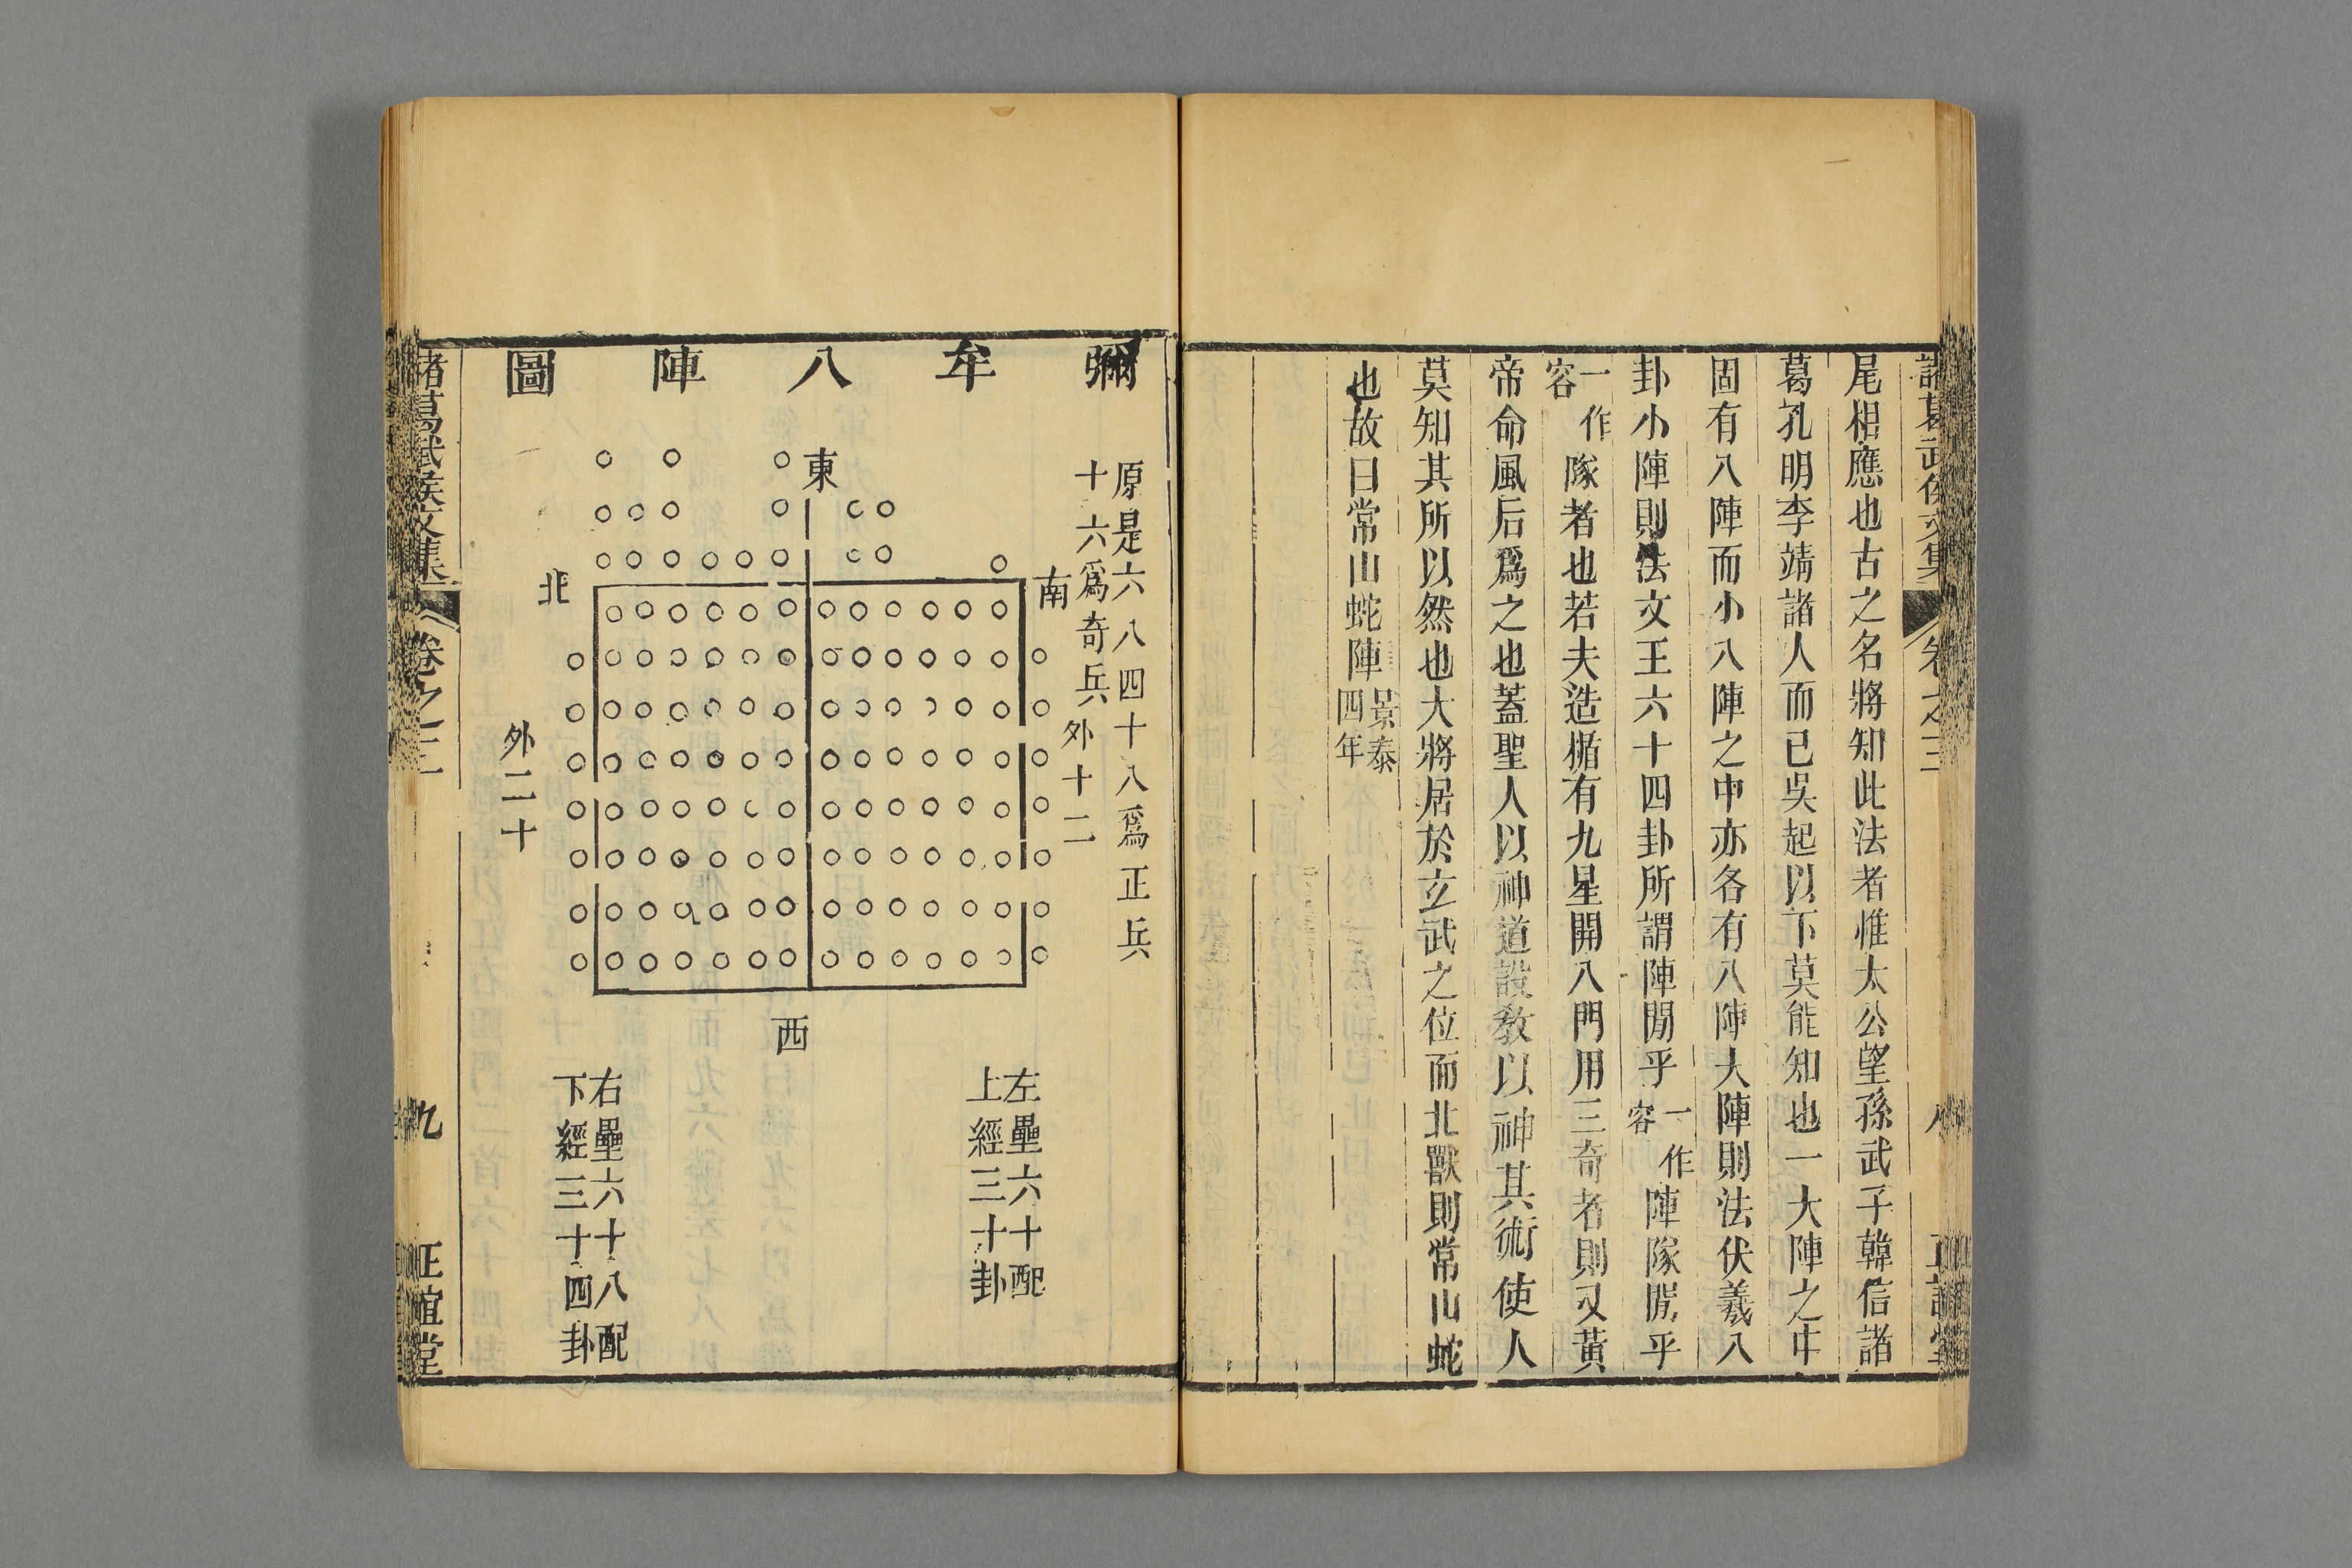 諸葛武侯文集 卷之三 八 正誼堂
尾相應也古之名將知此法者惟太公望孫武子韓信諸
葛孔明李靖諸人而已吳起以下莫能知也一大陣之中
固有八陣而小八陣之中亦各有八陣大陣則法伏羲八
卦小陣則法文王六十四卦所謂陣間容陣隊間
一作容
隊者也若夫造楯有九星開八門用三奇者則又黃
帝命風后爲之也蓋聖人以神道設教以神其術使人
莫知其所以然也大將居於玄武之位而北獸則常山蛇
也故曰常山蛇陣
景泰
四年
彌牟八陣圖
原是六八四十八爲正兵
十六爲奇兵
東
南
北
西
外十二
外二十
左壘六十配
上經三十卦
右壘六十八配
下經三十四卦
諸葛武侯文集 卷之三 九 正誼堂